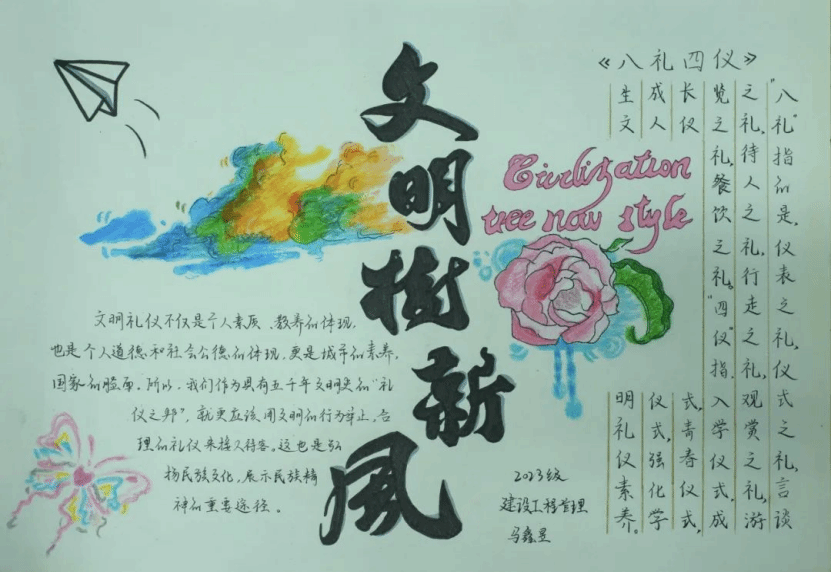 文明樹新風
《八礼四仪》
“八礼”指的是，仪表之礼，仪式之礼，言谈
之礼，待人之礼，行走之礼，观赏之礼，游
览之礼，餐饮之礼。“四仪”指，入学仪式，成
长仪式，青春仪式，
成人仪式，强化学
生文明礼仪素养。
Civilization
tree now style
文明礼仪不仅是个人素质、教养的体现，
也是个人道德和社会公德的体现，更是城市的素养，
国家的脸面，所以，我们作为具有五千年文明史的“礼
仪之邦”，就更应该用文明的行为举止，合
理的礼仪来接人待客。这也是弘
扬民族文化，展示民族精
神的重要途径。
2023级
建设工程管理
马鑫昱